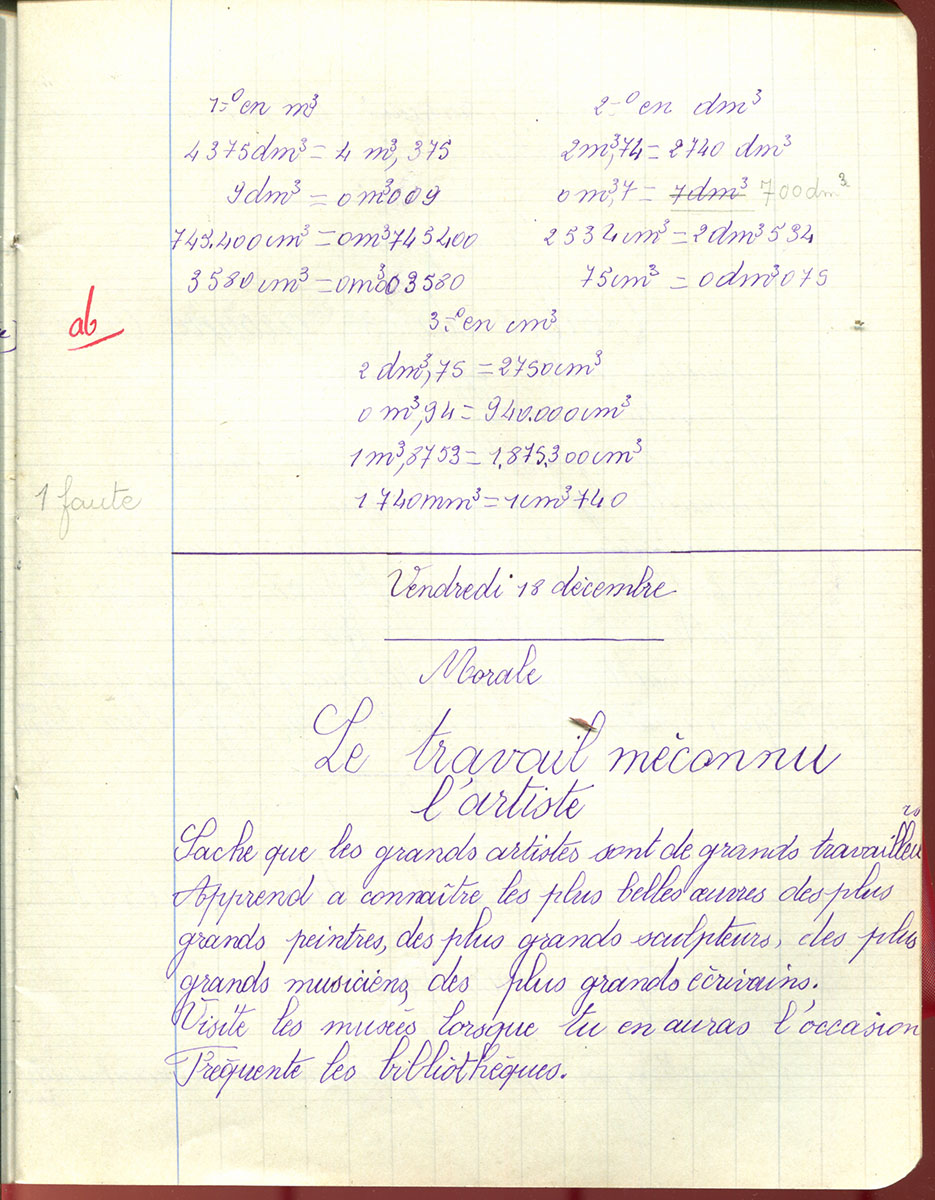 1-° en m³ 2-° en dm³
4375dm³ = 4 m³,375 2m³,74 = 2740 dm³
9dm³ = 0m³009 0m³,7 = 7dm³ 700dm³
745.400cm³ = 0m³745400 2534cm³ = 2dm³534
3580cm³ = 0m³003580 75cm³ = 0dm³075
ab
3-° en cm³
2 dm³,75 = 2750cm³
0 m³,94 = 940.000cm³
1m³,8753 = 1.875.300cm³
1 faute
1740mm³ = 1cm³740
Vendredi 18 décembre
Morale
Le travail méconnu
l'artiste
Sache que les grands artistes sont de grands travailleurs
Apprend a connaître les plus belles œuvres des plus
grands peintres, des plus grands sculpteurs, des plus
grands musiciens, des plus grands écrivains.
Visite les musées lorsque tu en auras l'occasion
Fréquente les bibliothèques.